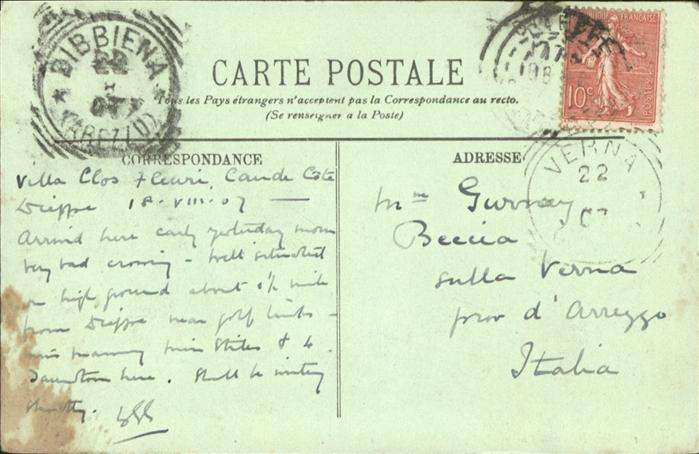 BIBBIENA
22
(AREZZO)
CARTE POSTALE
Tous les Pays étrangers n'acceptent pas la Correspondance au recto.
(Se renseigner à la Poste)
RÉPUBLIQUE FRANÇAISE
10c
POSTES
CORRESPONDANCE
Villa Clos Fleuri, Caude Cote
Dieppe 18-VIII-07
Arrived here early yesterday morn
very bad crossing - well situated
on high ground about 1½ mile
from Dieppe near golf links -
Miss
here. Shall be writing
shortly.
ADRESSE
VERNA
22
Mme Gurney
Beccia
sulla Verna
prov d'Arezzo
Italia